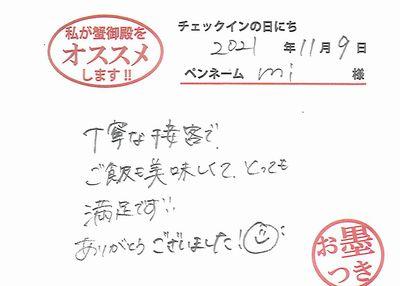 私が蟹御殿を
オススメ
します!!
チェックインの日にち
2021 年 11 月 9 日
ペンネーム mi 様
丁寧な接客で、
ご飯も美味しくて、とっても
満足です!!
ありがとうございました!
お墨
つき